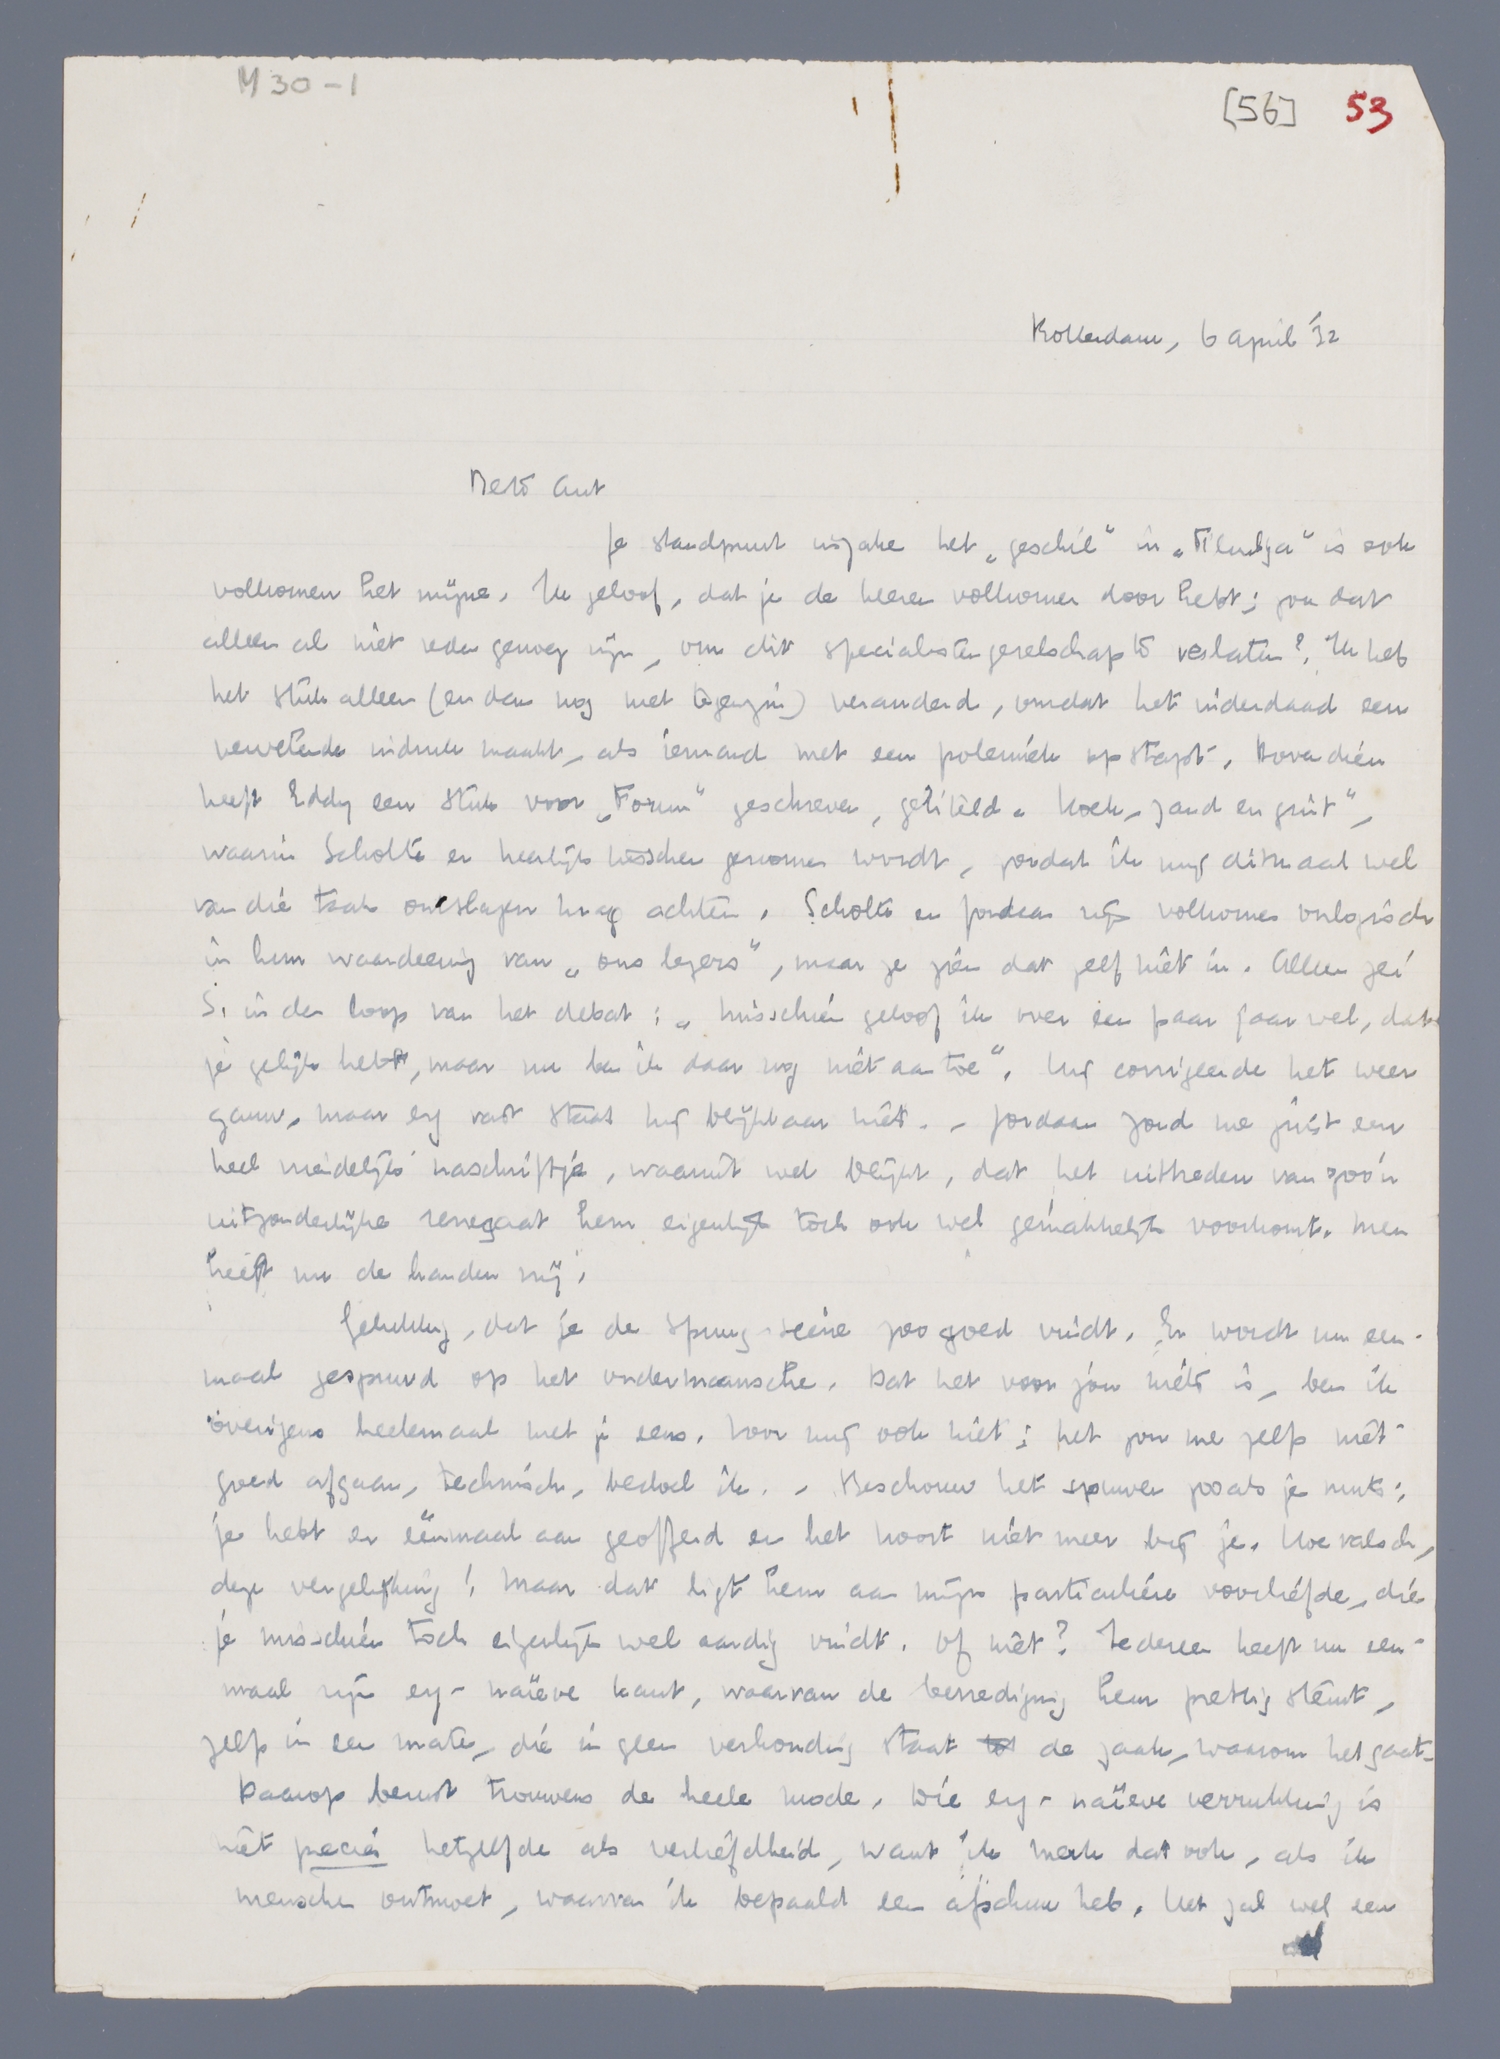 M 30 - 1
[56] 53
Rotterdam, 6 april '32
Beste Ant
Je standpunt inzake het „geschil" in „Filmliga" is ook
volkomen het mijne. Ik geloof, dat je de heeren volkomen door hebt; zou dat
alleen al niet reden genoeg zijn, om dit specialistengezelschap te verlaten? Ik heb
het stuk alleen (en dan nog met tegenzin) veranderd, omdat het inderdaad een
verwelende indruk maakt, als iemand met een polemiek opstapt. Bovendien
heeft Eddy een stuk voor „Forum" geschreven, getiteld „Koek, zand en gruit",
waarin Scholte er heerlijk tusschen genomen wordt, zoodat ik mij ditmaal wel
van die taak ontslagen mag achten. Scholte en Jordaan zijn volkomen onlogisch
in hun waardeering van „ons lezers", maar ze zien dat zelf niet in. Alleen zei
S. in den loop van het debat: „misschien geloof ik over een paar jaar wel, dat
je gelijk hebt, maar nu ben ik daar nog niet aan toe". Hij corrigeerde het weer
gauw, maar erg vast staat hij blijkbaar niet. - Jordaan zond me juist een
heel vriendelijk naschriftje, waaruit wel blijkt, dat het uittreden van zoo'n
uitzonderlijke renegaat hem eigenlijk toch ook wel gemakkelijk voorkomt. Men
heeft nu de handen vrij!
Gelukkig, dat je de spuug-scène zoo goed vindt. Er wordt nu een-
maal gespuwd op het ondermaansche. Dat het voor jou niets is, ben ik
overigens heelemaal met je eens. Voor mij ook niet; het zou me zelfs niet
goed afgaan, technisch, bedoel ik. - Beschouw het spuwen zooals je muts;
je hebt er éénmaal aan geofferd en het hoort niet meer bij je. Hoe valsch,
deze vergelijking! Maar dat ligt hem aan mijn particuliere voorliefde, die
je misschien toch eigenlijk wel aardig vindt. Of niet? Iedereen heeft nu een-
maal zijn erg-naïeve kant, waarvan de bevrediging hem prettig stemt,
zelfs in een mate, die in geen verhouding staat tot de zaak, waarom het gaat.
Daarop berust trouwens de heele mode. Die erg-naïeve verrukking is
niet precies hetzelfde als verliefdheid, want ik merk dat ook, als ik
menschen ontmoet, waarvan ik bepaald een afschuw heb. Het zal wel een